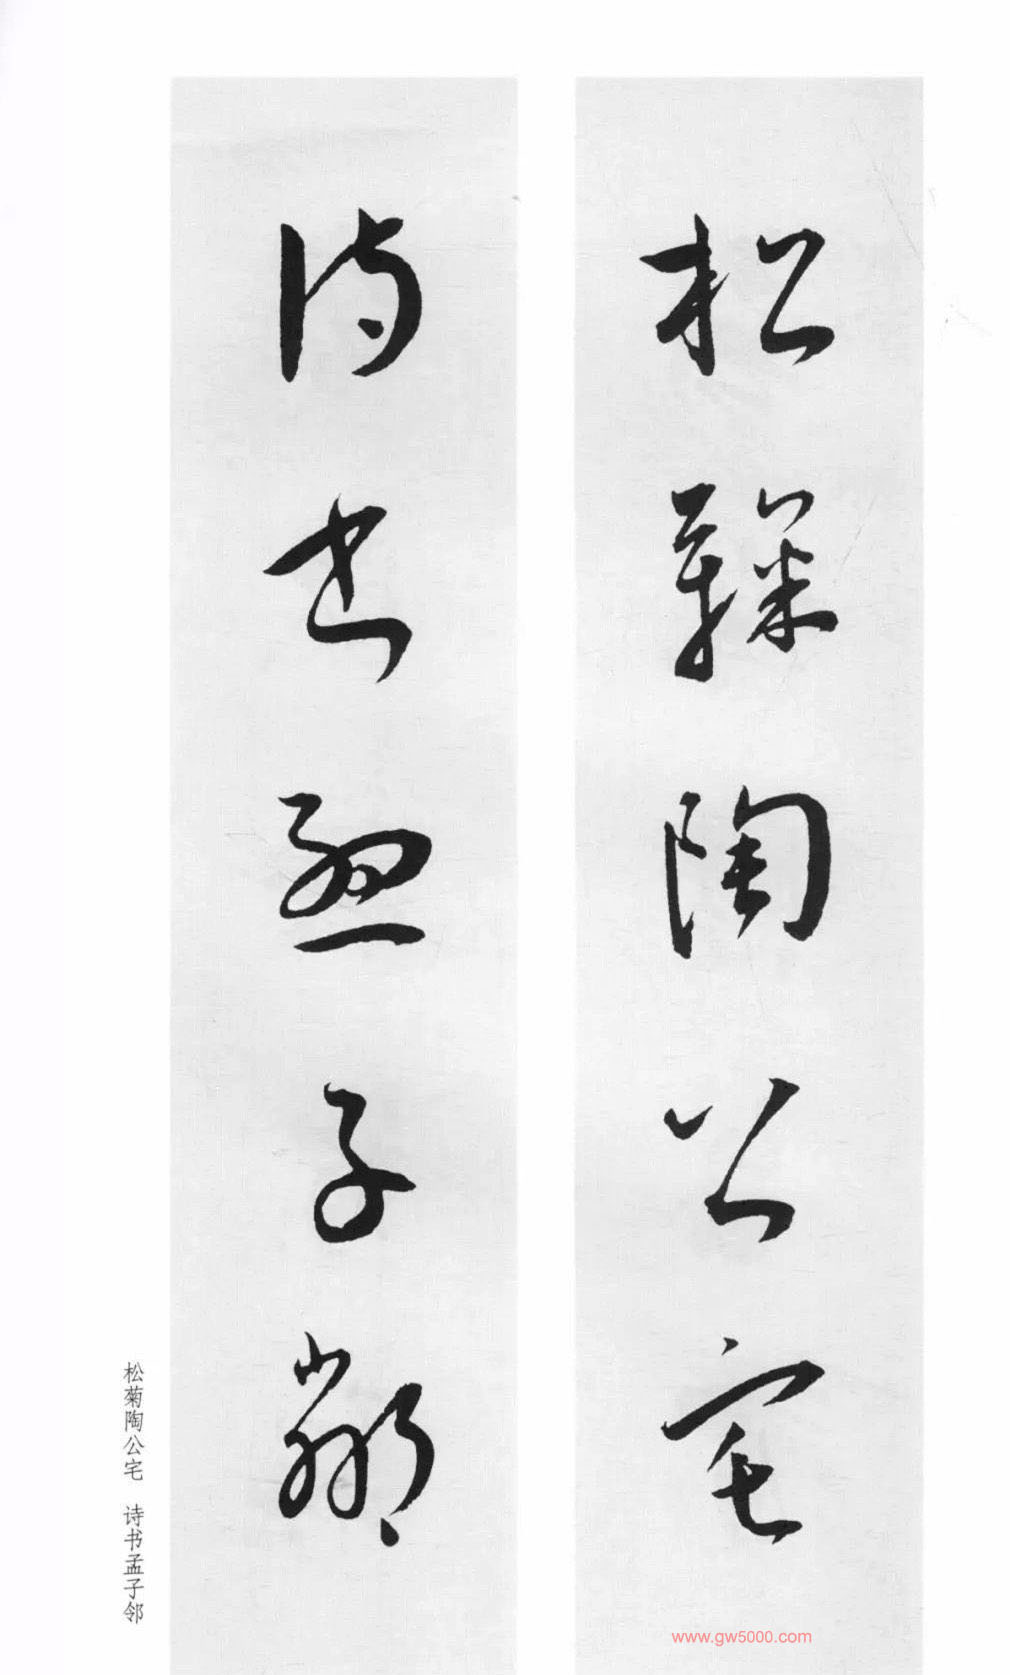 松鞠陶公宅
诗书孟子邻
松菊陶公宅 诗书孟子邻
www.gw5000.com